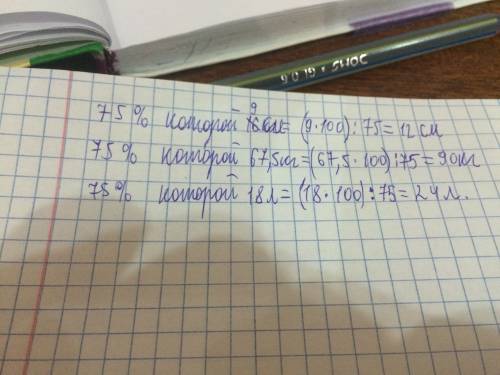 75% которой 9 см = (9·100):75 = 12 см
75% которой 67,5кг=(67,5·100):75=90кг
75% которой 18л=(18·100):75=24л.